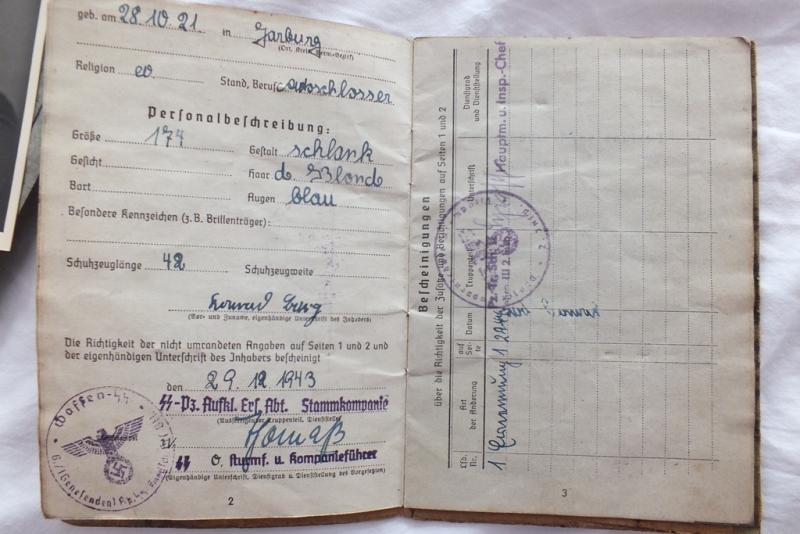 geb. am 28.10.21 in
(Ort, Kreis, Verw.-Bezirk)
Religion ev Stand, Beruf
Personalbeschreibung:
Größe 174 Gestalt schlank
Gesicht Haar d. Blond
Bart Augen blau
Besondere Kennzeichen (z. B. Brillenträger):
Schuhzeuglänge 42 Schuhzeugweite
Konrad
(Vor- und Zuname, eigenhändige Unterschrift des Inhabers)
Die Richtigkeit der nicht umrandeten Angaben auf Seiten 1 und 2 und
der eigenhändigen Unterschrift des Inhabers bescheinigt
den 29.12.1943
SS-Pz. Aufkl. Ers. Abt. Stammkompanie
(Ausfertigender Truppenteil, Dienststelle)
SS O. Sturmf. u. Kompanieführer
(Eigenhändige Unterschrift, Dienstgrad u. Dienststellung des Vorgesetzten)
Waffen-SS
2
Bescheinigungen
über die Richtigkeit der Zusätze und Berichtigungen auf Seiten 1 und 2
Lfd. Nr.
Art der Änderung
auf Seite
Datum
Truppenteil
Unterschrift
Dienstgrad und Dienststellung
1
Hauptm. u. Insp.-Chef
3